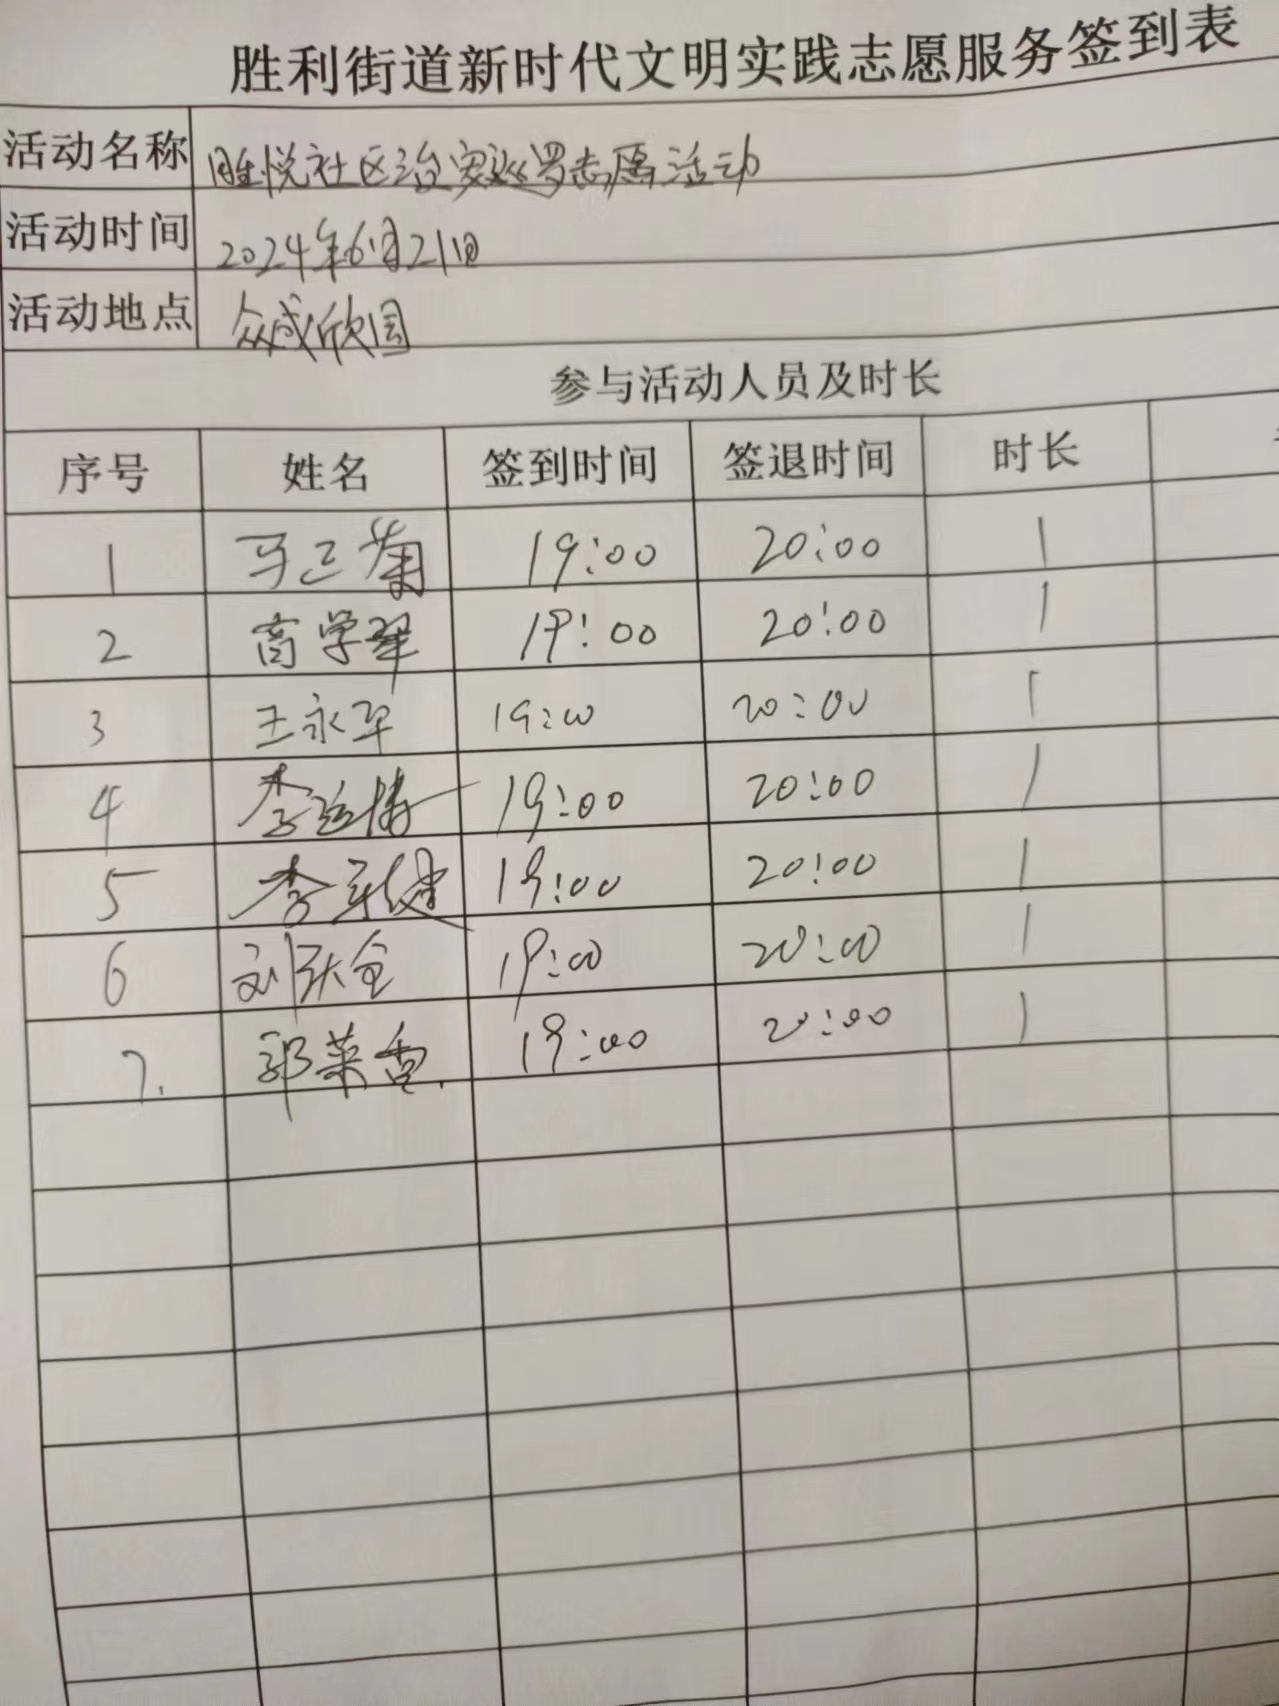 胜利街道新时代文明实践志愿服务签到表
活动名称 胜悦社区治安巡罗志愿活动
活动时间 2024年6月21日
活动地点 众成欣园
参与活动人员及时长
序号 姓名 签到时间 签退时间 时长
1 马三菊 19:00 20:00 1
2 商学翠 19:00 20:00 1
3 王永军 19:00 20:00 1
4 李 19:00 20:00 1
5 李健 19:00 20:00 1
6 刘全 19:00 20:00 1
7. 郭菜香. 19:00 20:00 1